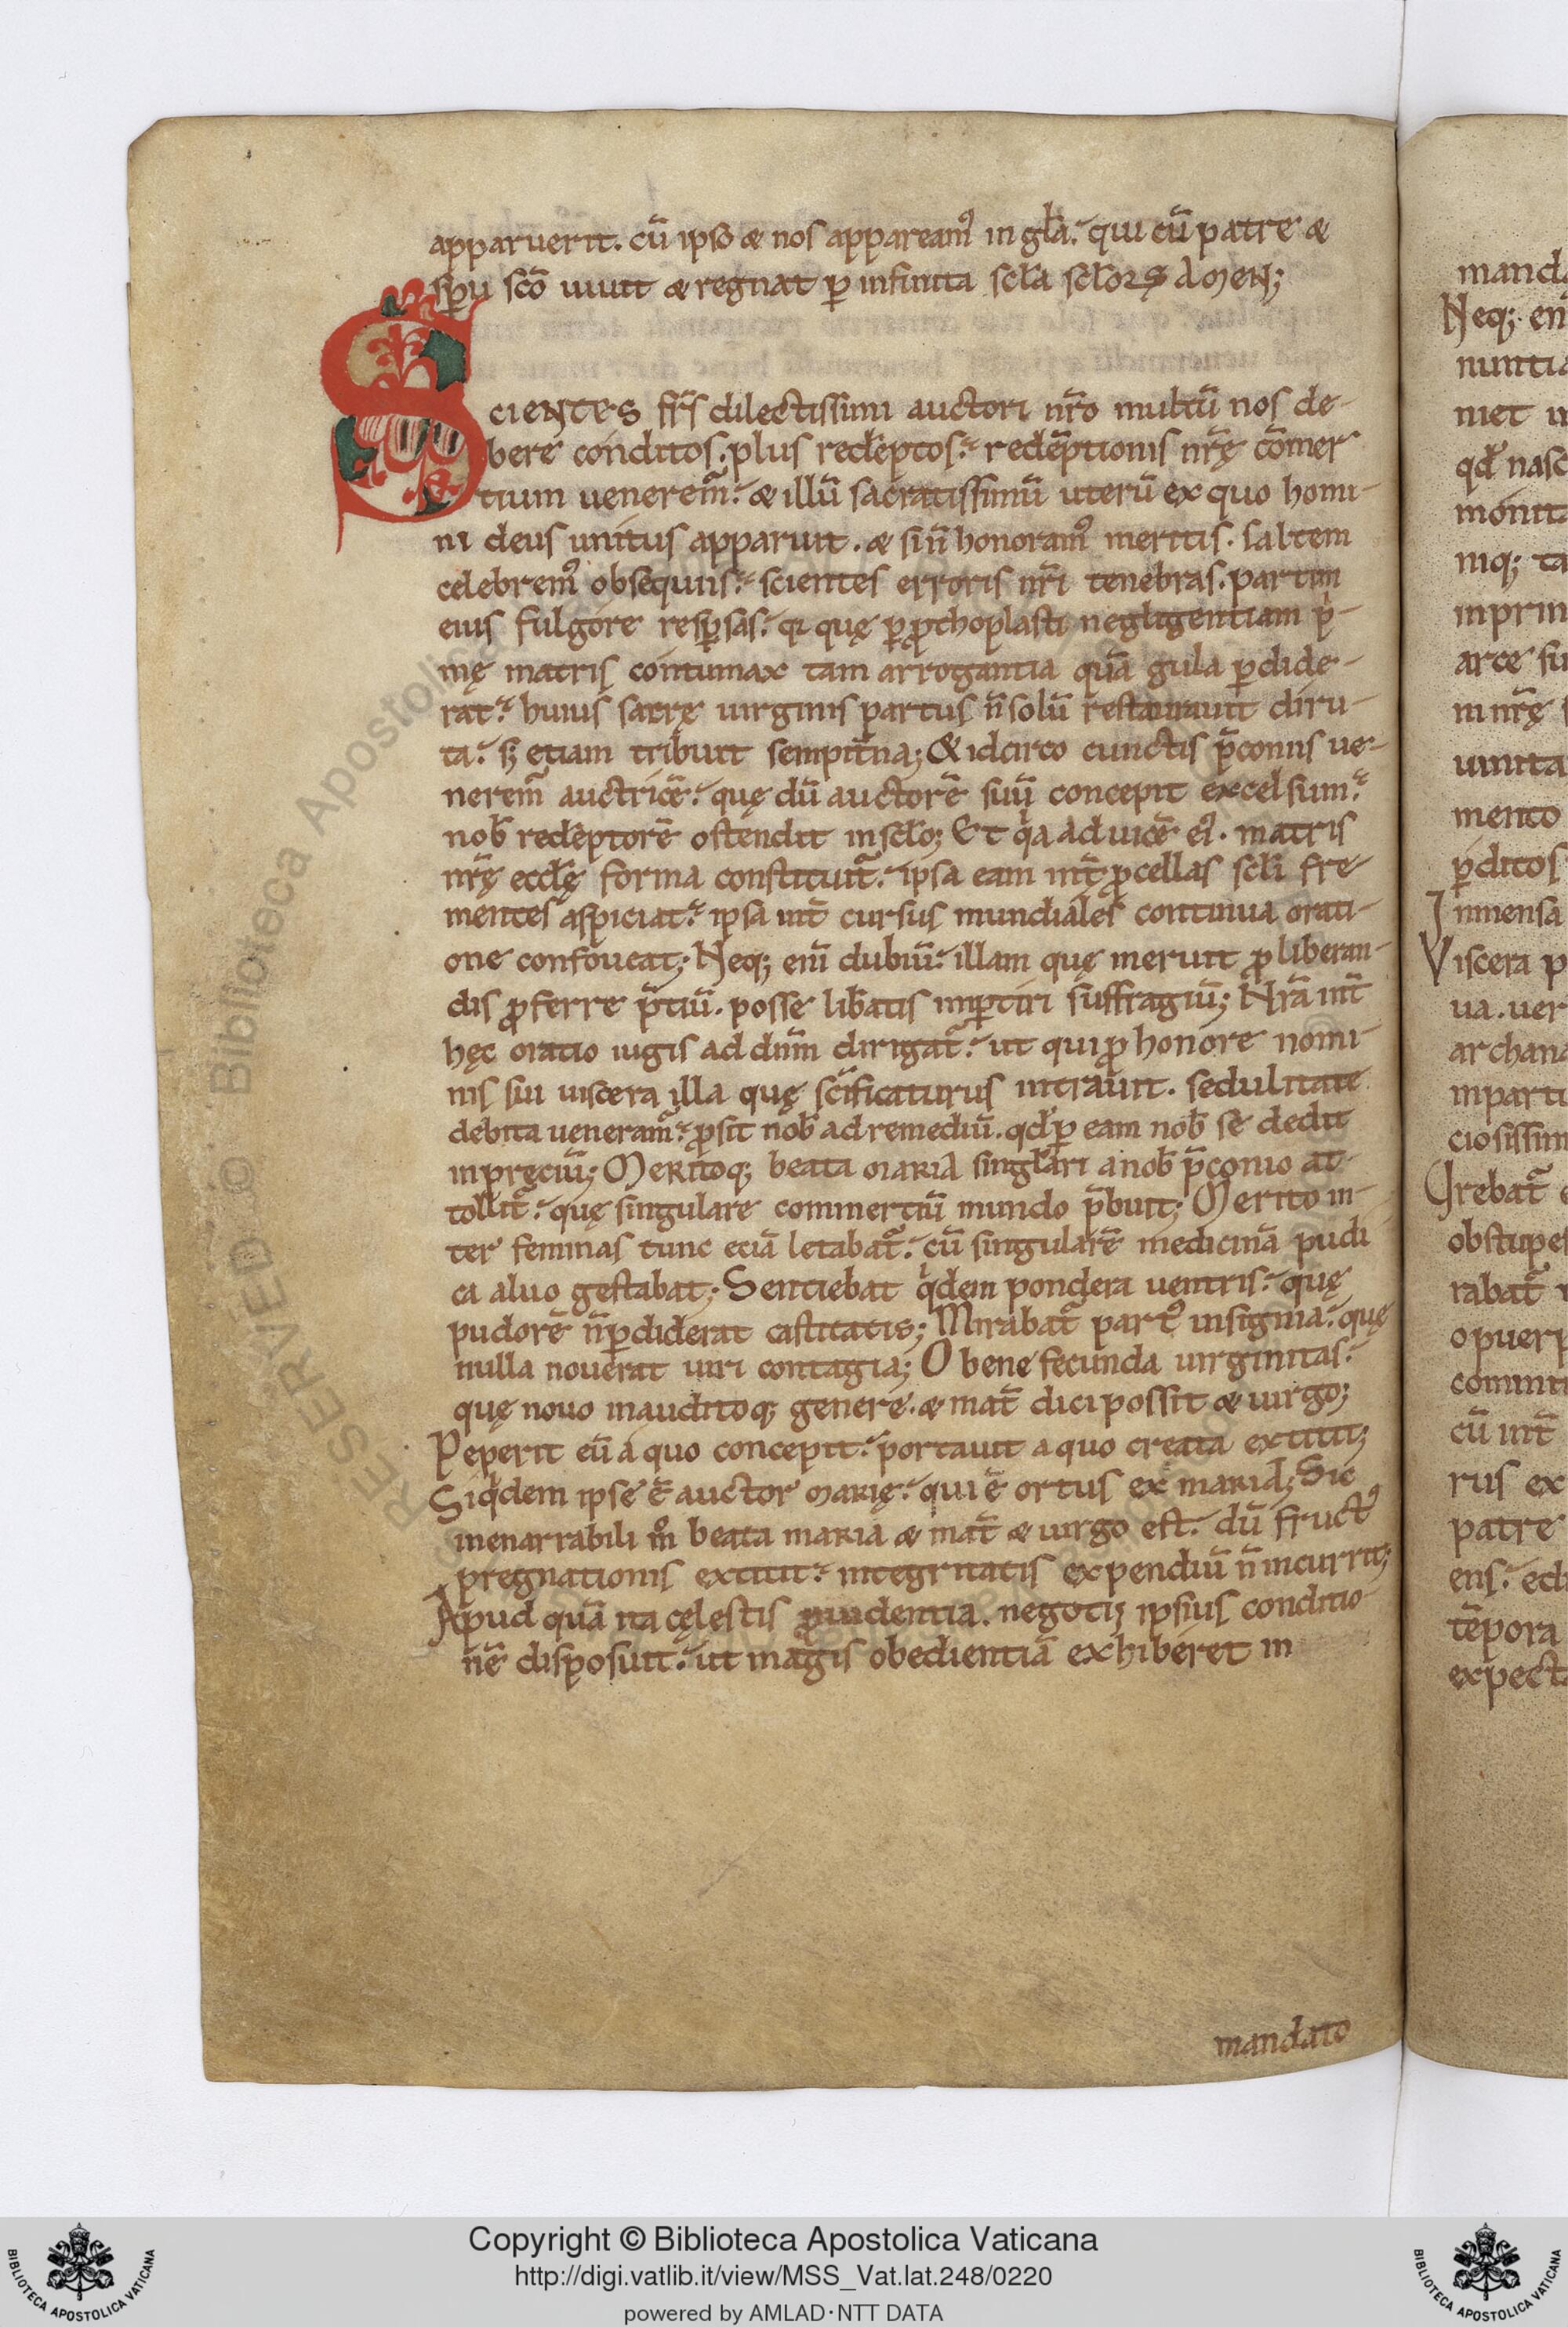 apparuerit. cū ipso & nos appareamꝰ in gl̄a. qui cū patre &
sp̄u sc̄o uiuit & regnat ꝑ infinita sc̄la sc̄loꝝ AMEN;
SCIENTES fr̄s dilectissimi auctori nr̄o multū nos de-
bere conditos. plus redēptos. redēptionis nr̄ę cōmer
tium uenerem̄. & illū sacratissimū uterū ex quo homi-
ni deus unitus apparuit. & si n̄ honoramꝰ meritis. saltem
celebremꝰ obsequiis. scientes erroris nr̄i tenebras. partim
eius fulgore resꝑsas. q̄ quę ꝑ ꝓthoplasti negligentiam p̄-
mę matris contumax tam arrogantia quā gula ꝑdide-
rat. huius sacrę uirginis partus n̄ solū restaurauit diru-
ta. sꝫ etiam tribuit sempit̄na; & idcirco cunctis p̄coniis ue-
nerem̄ auctricē. quę dū auctorē suū concepit excelsum.
nob̄ redēptorē ostendit in sc̄lo; Et q̄a ad uicē eiꝰ. matris
nr̄ę eccl̄ę forma constituit̄. ipsa eam int̄ ꝓcellas sc̄li fre-
mentes aspiciat. ipsa int̄ cursus mundiales continua orati-
one confoueat; Neq; enī dubiū. illam quę meruit ꝓ liberan-
dis ꝓferre p̄tiū. posse lib̄atis imꝑtiri suffragiū; Nr̄a int̄
hęc oratio iugis ad dn̄m dirigat̄. ut qui ꝓ honore nomi-
nis sui uiscera illa quę sc̄ificaturus intrauit. sedulitate
debita ueneram̄. ꝓsit nob̄ ad remediū. qd̄ ꝑ eam nob̄ se dedit
in pręciū; Meritoq; beata maria singl̄ari a nob̄ p̄conio at-
tollit̄. quę singulare commertiū mundo p̄buit; Merito in-
ter feminas tunc eciā letabat̄. cū singularē medicinā pudi
ca aluo gestabat; Sentiebat q̄dem pondera uentris. quę
pudorē n̄ ꝑdiderat castitatis; Mirabat̄ partꝰ insignia. quę
nulla nouerat uiri contagia; O bene fecunda uirginitas.
quę nouo inauditoq; genere. & mat̄ dici possit & uirgo;
Peperit eū a quo concepit. portauit a quo creata extitit;
Siq̄dem ipse ē auctor marię. qui ē ortus ex maria; Sic
inenarrabili m̊ beata maria & mat̄ & uirgo est. dū fructꝰ
pregnationis extitit. integritatis expendiū n̄ incurrit;
Apud quā ita cęlestis ꝓuidentia. negotii ipsius conditio-
nē disposuit. ut magis obedientiā exhiberet in
mandato
manda
Neq; en
nuntia
qd̄ nasc
monit
inprim
arce su
in nr̄ę
uiuita
mento
ꝑditos
Inmensa
Viscera p
ua. uer
archana
inparti
ciosissim
Grebat̄
obstupes
rabat̄
o puerp
commi
cū int̄
rus ex
patre
ens. ed
tēpora
expecta
© Biblioteca Apostolica
Copyright © Biblioteca Apostolica Vaticana
http://digi.vatlib.it/view/MSS_Vat.lat.248/0220
powered by AMLAD·NTT DATA
BIBLIOTECA APOSTOLICA VATICANA
BIBLIOTECA APOSTOLICA VATICANA